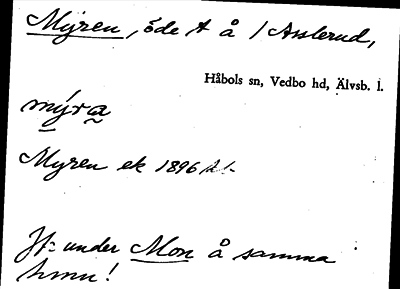 Myren, öde t å 1 Asslerud,
Håbols sn, Vedbo hd, Älvsb. l.
mýra
Myren ek 1896
Jfr under Mon å samma
hmn!